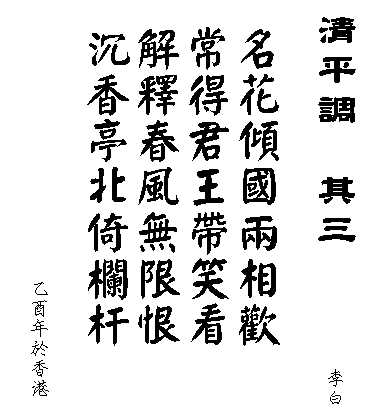 清平調 其三
李白
名花傾國兩相歡
常得君王帶笑看
解釋春風無限恨
沉香亭北倚欄杆
乙酉年於香港